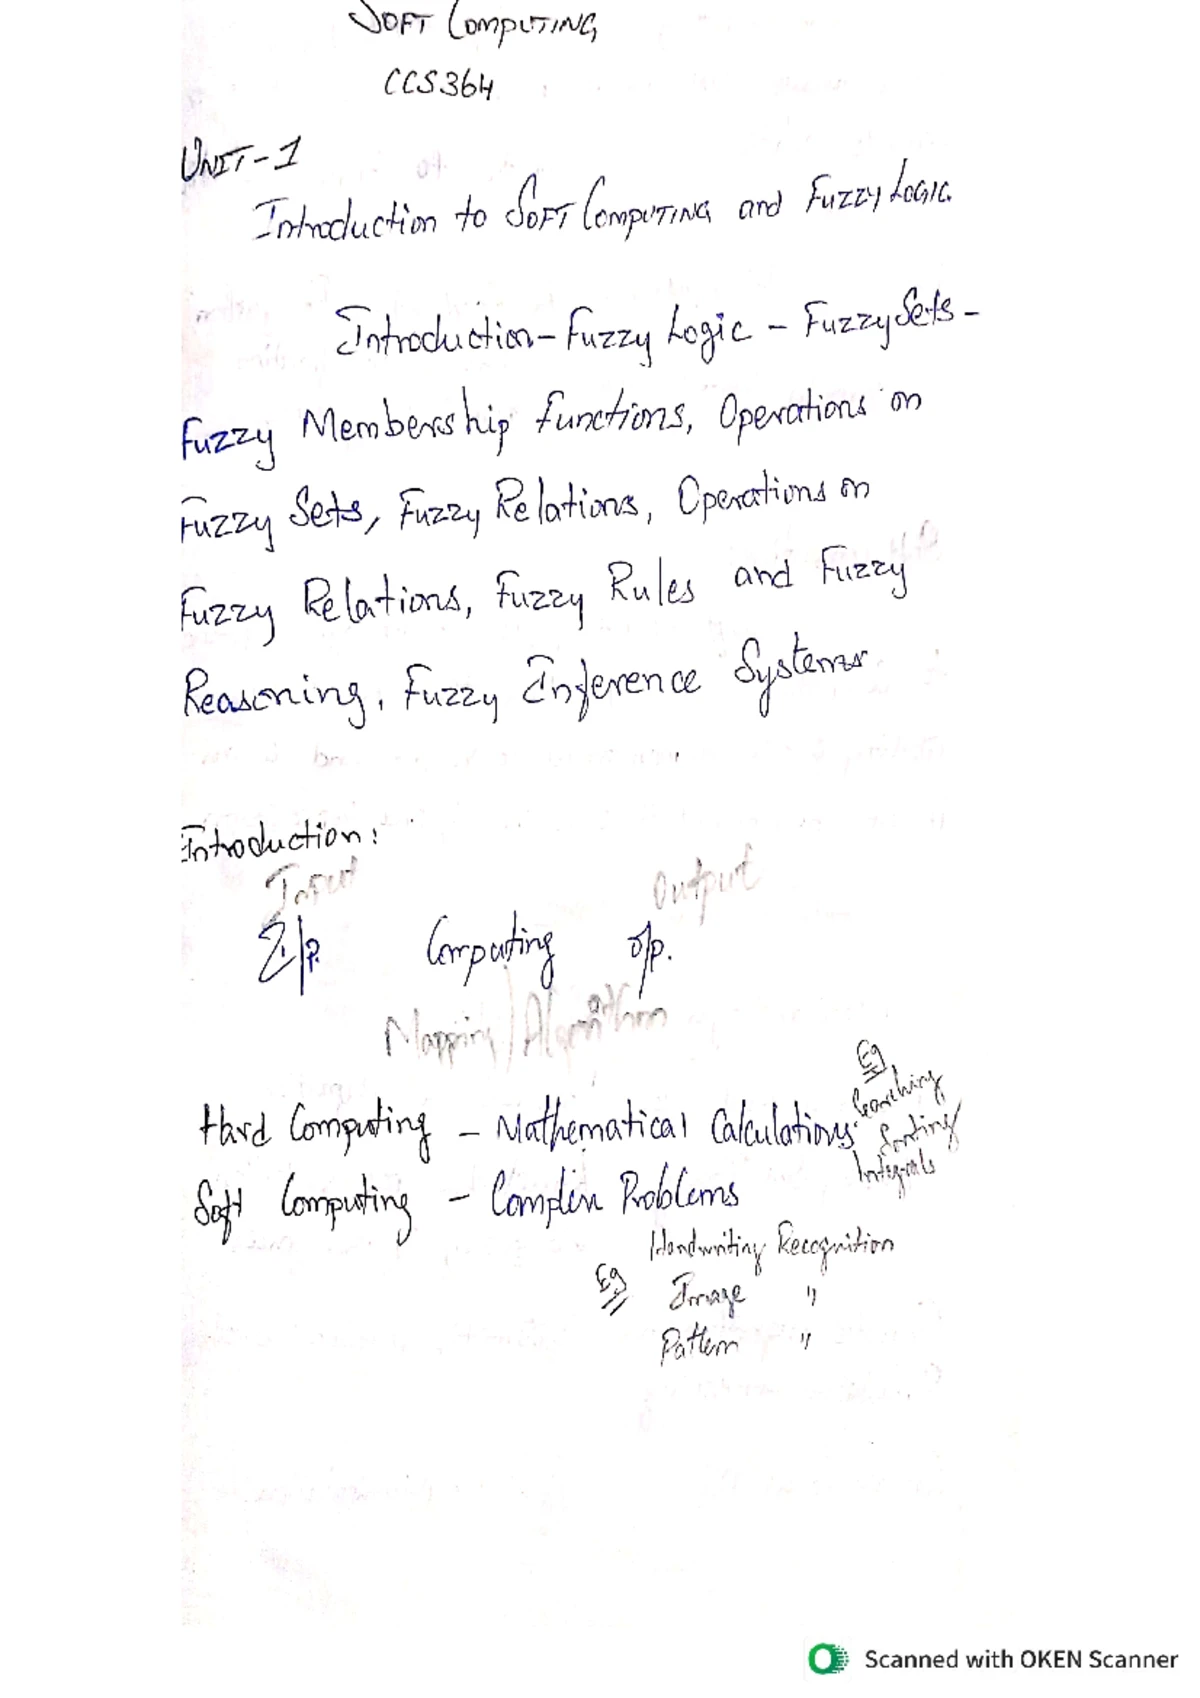 SOFT COMPUTING
CCS364
UNIT-1
Introduction to SOFT COMPUTING and FUZZY LOGIC.
Introduction - Fuzzy Logic - Fuzzy Sets -
Fuzzy Membership functions, Operations on
Fuzzy Sets, Fuzzy Relations, Operations on
Fuzzy Relations, Fuzzy Rules and Fuzzy
Reasoning, Fuzzy Inference Systems
Introduction:
Input Output
I/P. Computing O/P.
Mapping/Algorithm
Eg
Searching
Hard Computing - Mathematical Calculations. Sorting
Integrals
Soft Computing - Complex Problems
Handwriting Recognition
Eg Image "
Pattern "
Scanned with OKEN Scanner